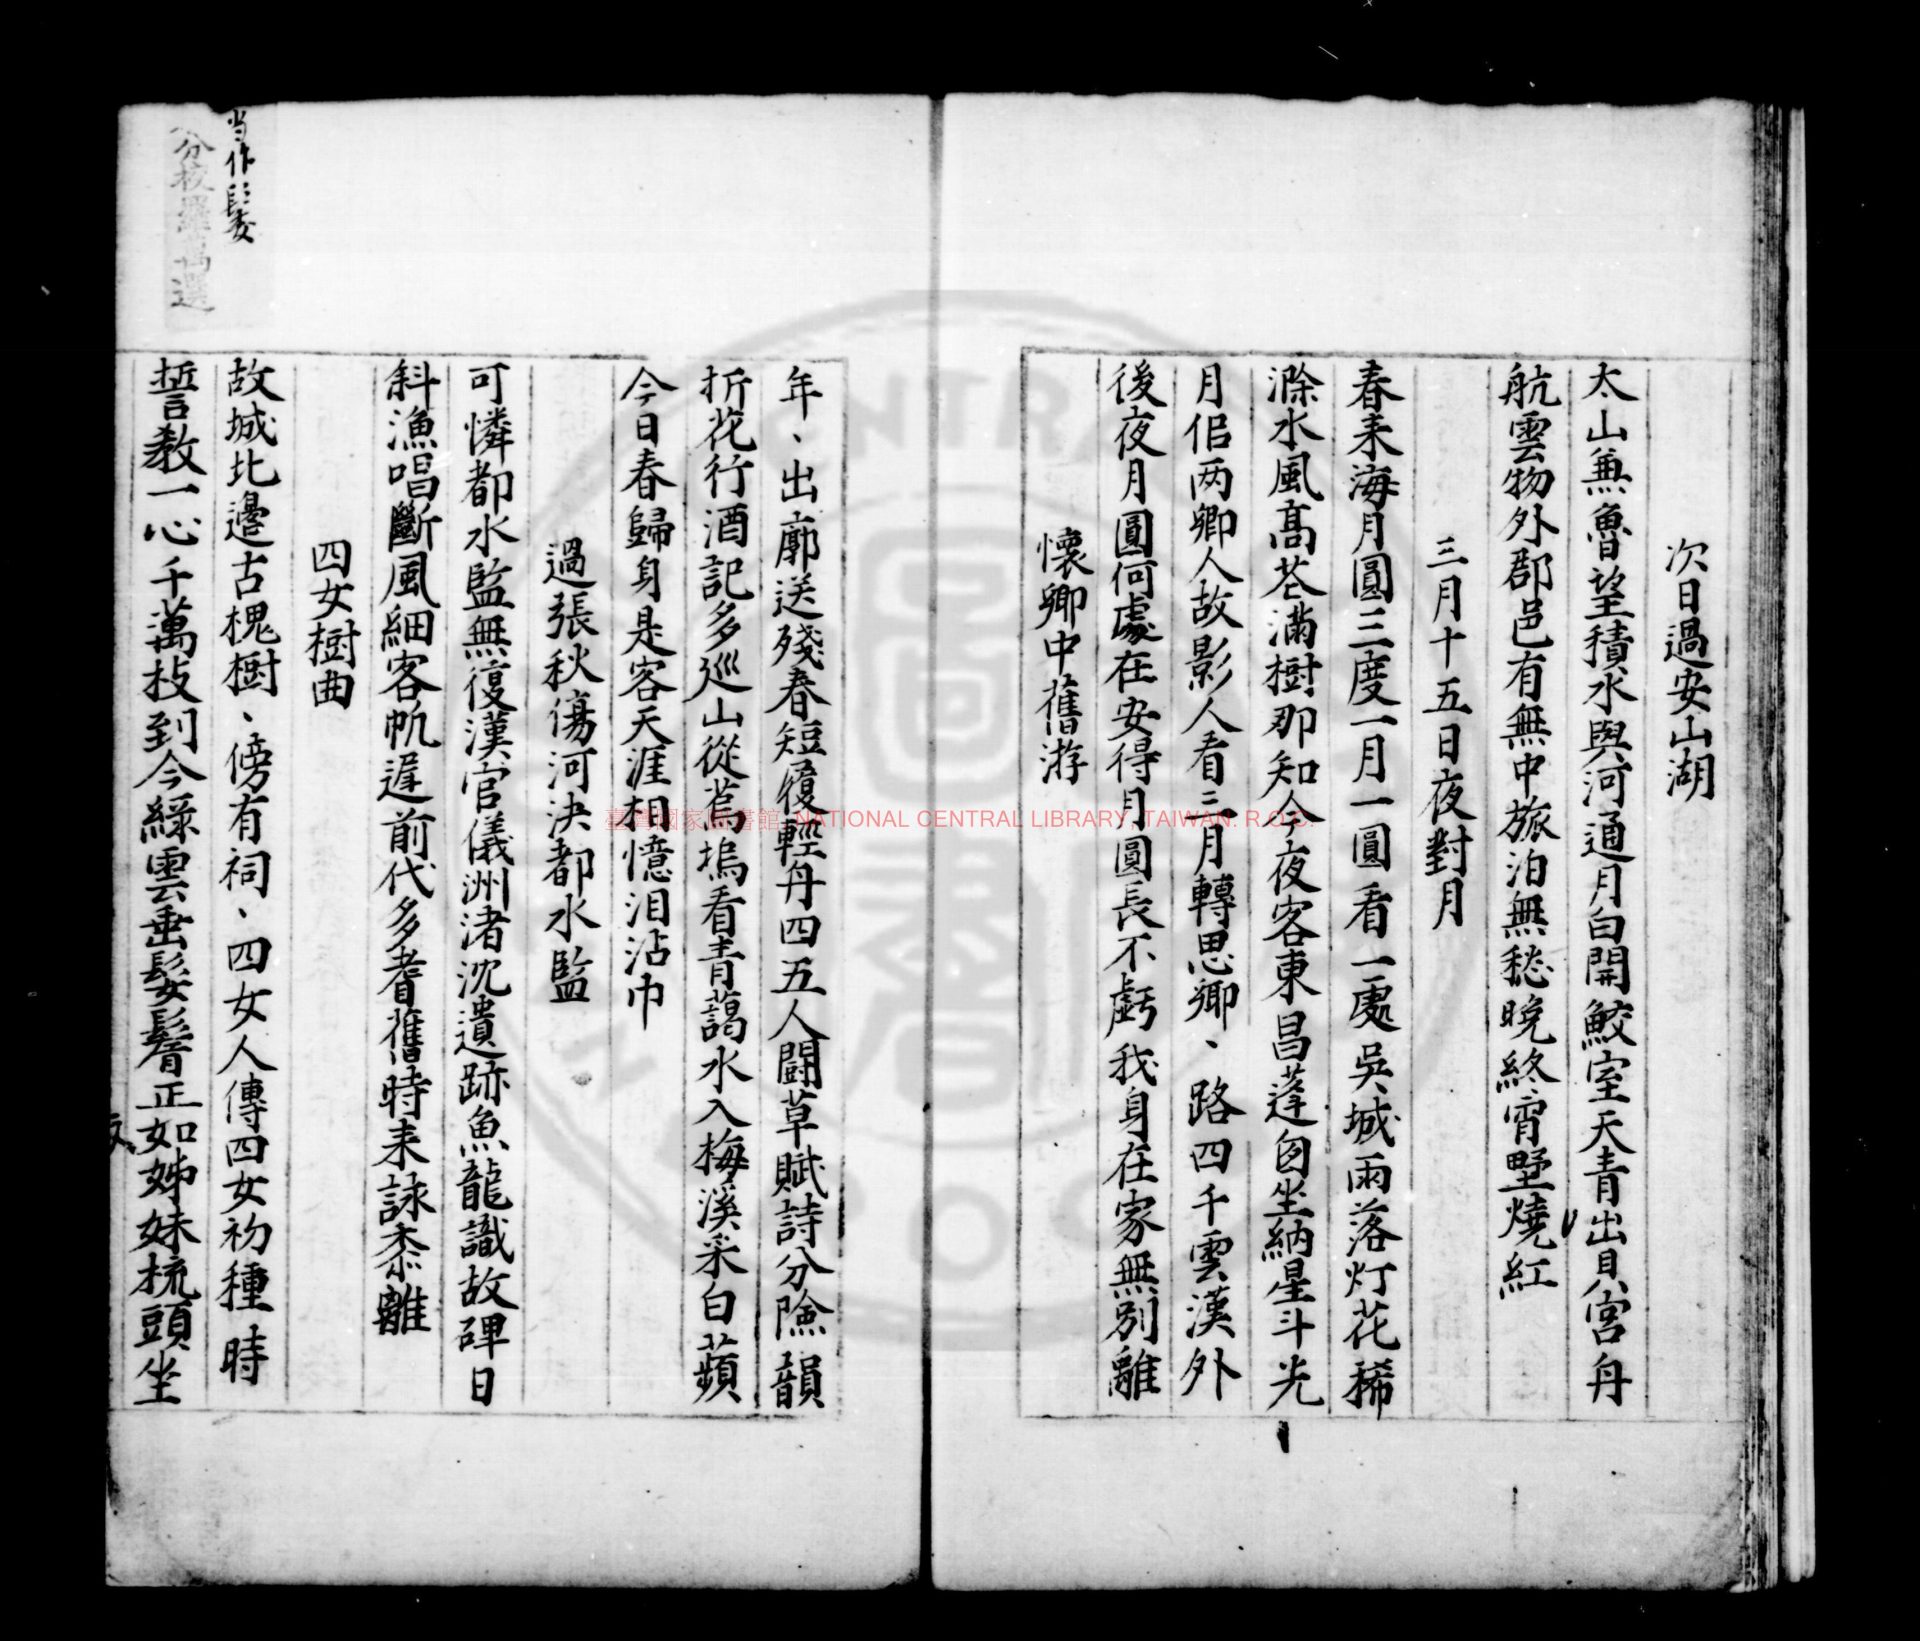 次日過安山湖
太山無魯望積水與河通月白開鮫室天青出貝宮舟
航雲物外郡邑有無中旅泊無愁晚終宵墅燒紅
三月十五日夜對月
春来海月圓三度一月一圓看一處吳城雨落灯花稀
滁水風髙苍滿樹那知今夜客東昌蓬囱坐納星斗光
月侶两卿人故影人看二月轉思卿、路四千雲漢外
後夜月圓何處在安得月圓長不虧我身在家無別離
懷卿中舊游
年、出廓送殘春短履輕舟四五人鬪草賦詩分險韻
折花行酒記多巡山從蔦塢看青藹水入梅溪采白蘋
今日春歸身是客天涯相憶泪沾巾
過張秋傷河決都水監
可憐都水監無復漢官儀洲渚沈遺跡魚龍識故碑日
斜漁唱斷風細客帆遲前代多耆舊時来詠黍離
四女樹曲
故城北邊古槐樹、傍有祠、四女人傳四女初種時
誓教一心千萬枝到今綠雲垂髮鬌正如姊妹梳頭坐
当作鬟
分校羅萬選
臺灣國家圖書館, NATIONAL CENTRAL LIBRARY, TAIWAN. R.O.C.